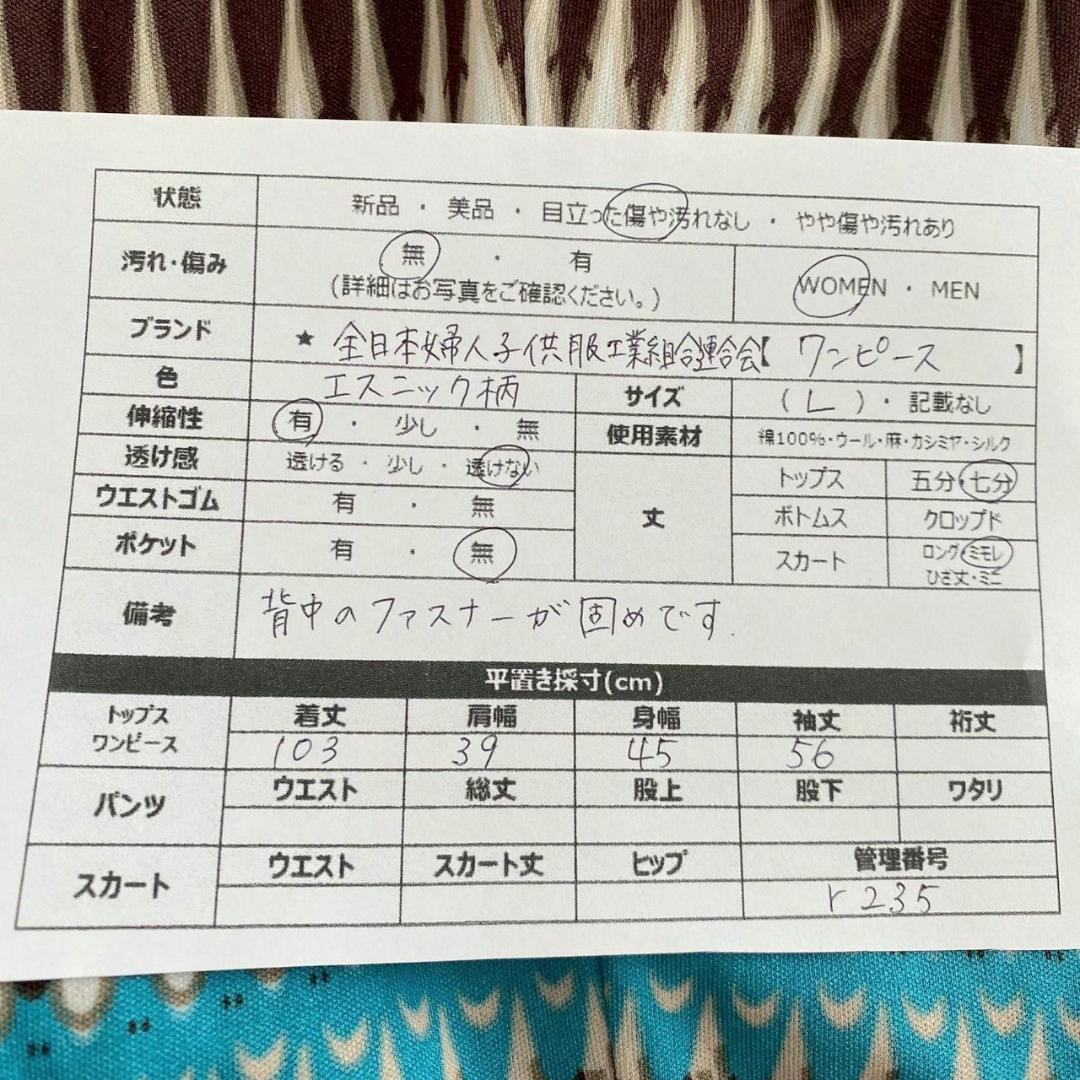 状態 新品 ・ 美品 ・ 目立った傷や汚れなし ・ やや傷や汚れあり
汚れ・傷み 無 ・ 有
(詳細はお写真をご確認ください。)
WOMEN ・ MEN
ブランド ★ 全日本婦人子供服工業組合連合会【 ワンピース 】
色 エスニック柄 サイズ ( L ) ・ 記載なし
伸縮性 有 ・ 少し ・ 無 使用素材 綿100%・ウール・麻・カシミヤ・シルク
透け感 透ける ・ 少し ・ 透けない
丈 トップス 五分・七分
ウエストゴム 有 ・ 無 ボトムス クロップド
ポケット 有 ・ 無 スカート ロング・ミモレ
ひざ丈・ミニ
備考 背中のファスナーが固めです.
平置き採寸(cm)
トップス
ワンピース
着丈 肩幅 身幅 袖丈 裄丈
103 39 45 56
パンツ ウエスト 総丈 股上 股下 ワタリ
スカート ウエスト スカート丈 ヒップ 管理番号
r 235